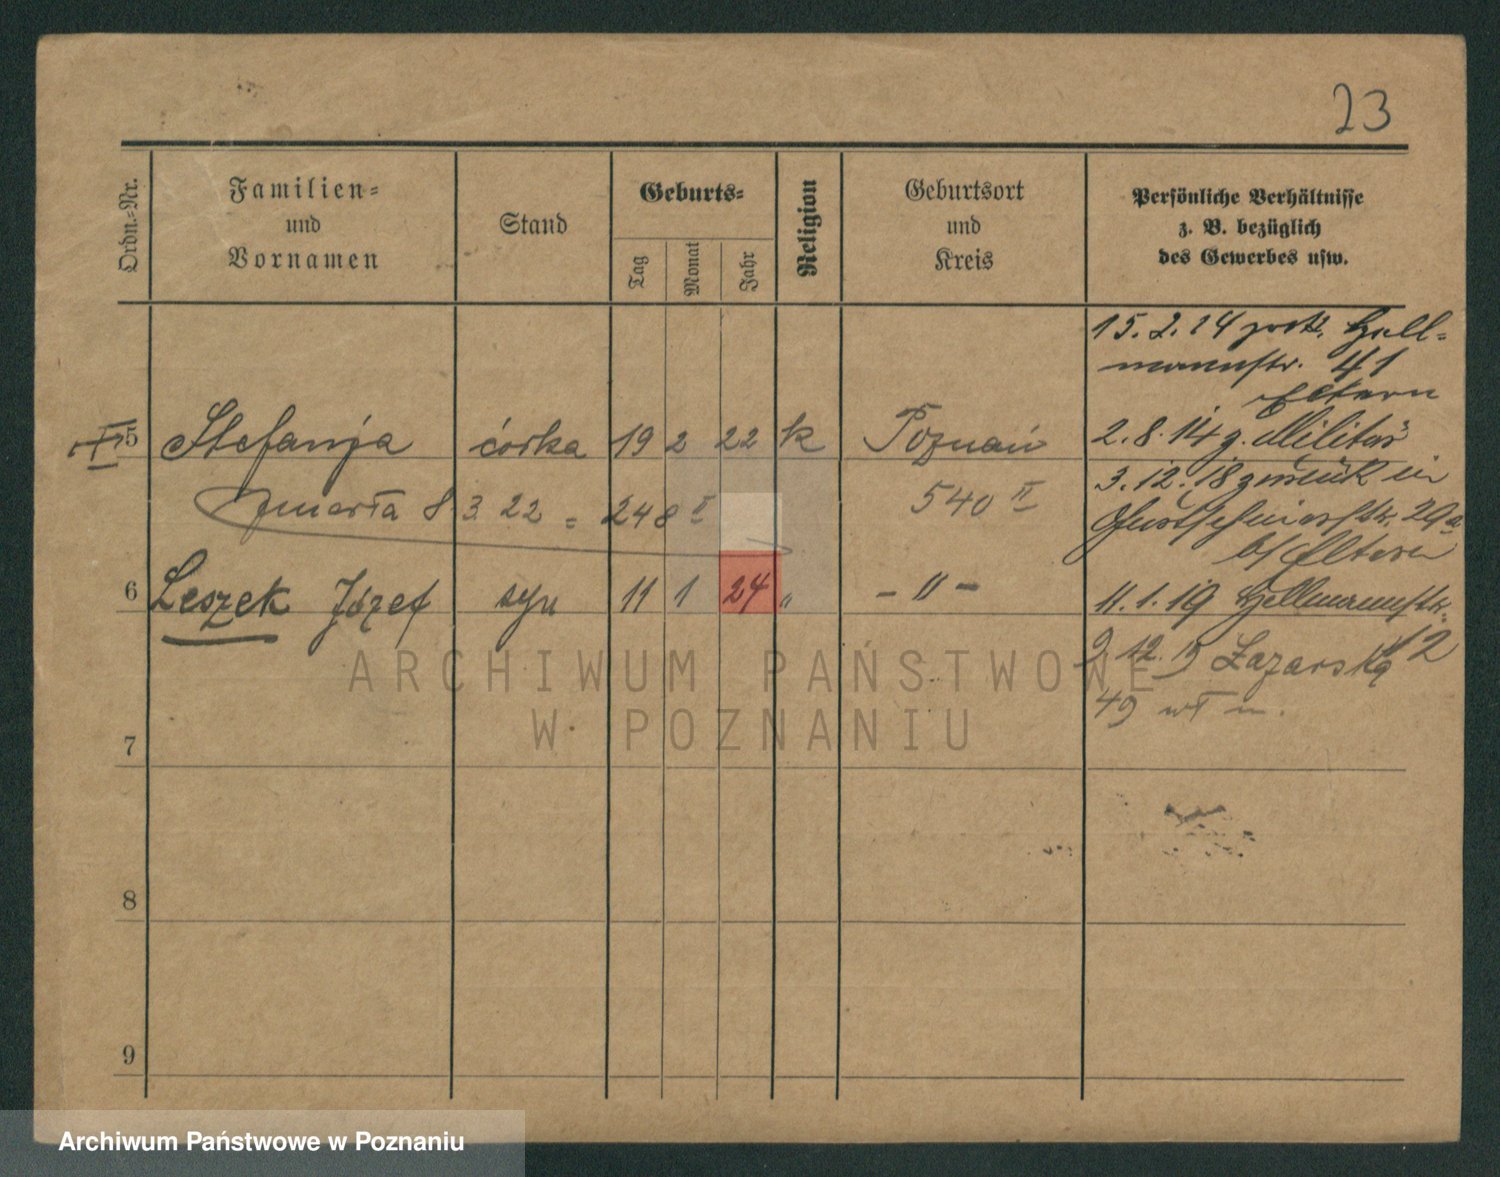 23
Ordn.-Nr.
Familien-
und
Vornamen
Stand
Geburts-
Tag
Monat
Jahr
Religion
Geburtsort
und
Kreis
Persönliche Verhältnisse
z. B. bezüglich
des Gewerbes usw.
15.2.14 zurk. Hell-
mannstr. 41
Eltern
5 Stefanja córka 19 2 22 k Poznań
2.8.14 z. Militär
zmarła 8.3 22 = 248 II
540 II
3.12.18 zurück in
29a
b/ Eltern
6 Leszek Józef syn 11 1 24 " – " –
11.1.19 Hellmannstr.
12
2.12.19 Łazarska
49 wł m.
7
8
9
ARCHIWUM PAŃSTWOWE
W POZNANIU
Archiwum Państwowe w Poznaniu